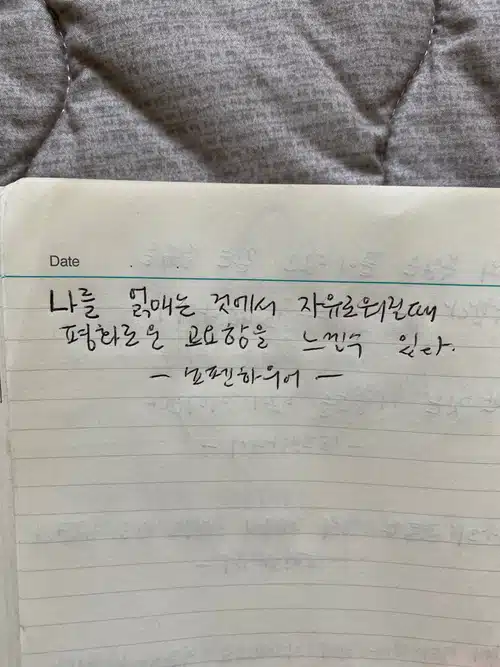 Date
나를 얽매는 것에서 자유로워질때
평화로운 고요함을 느낄수 있다.
- 쇼펜하우어 -